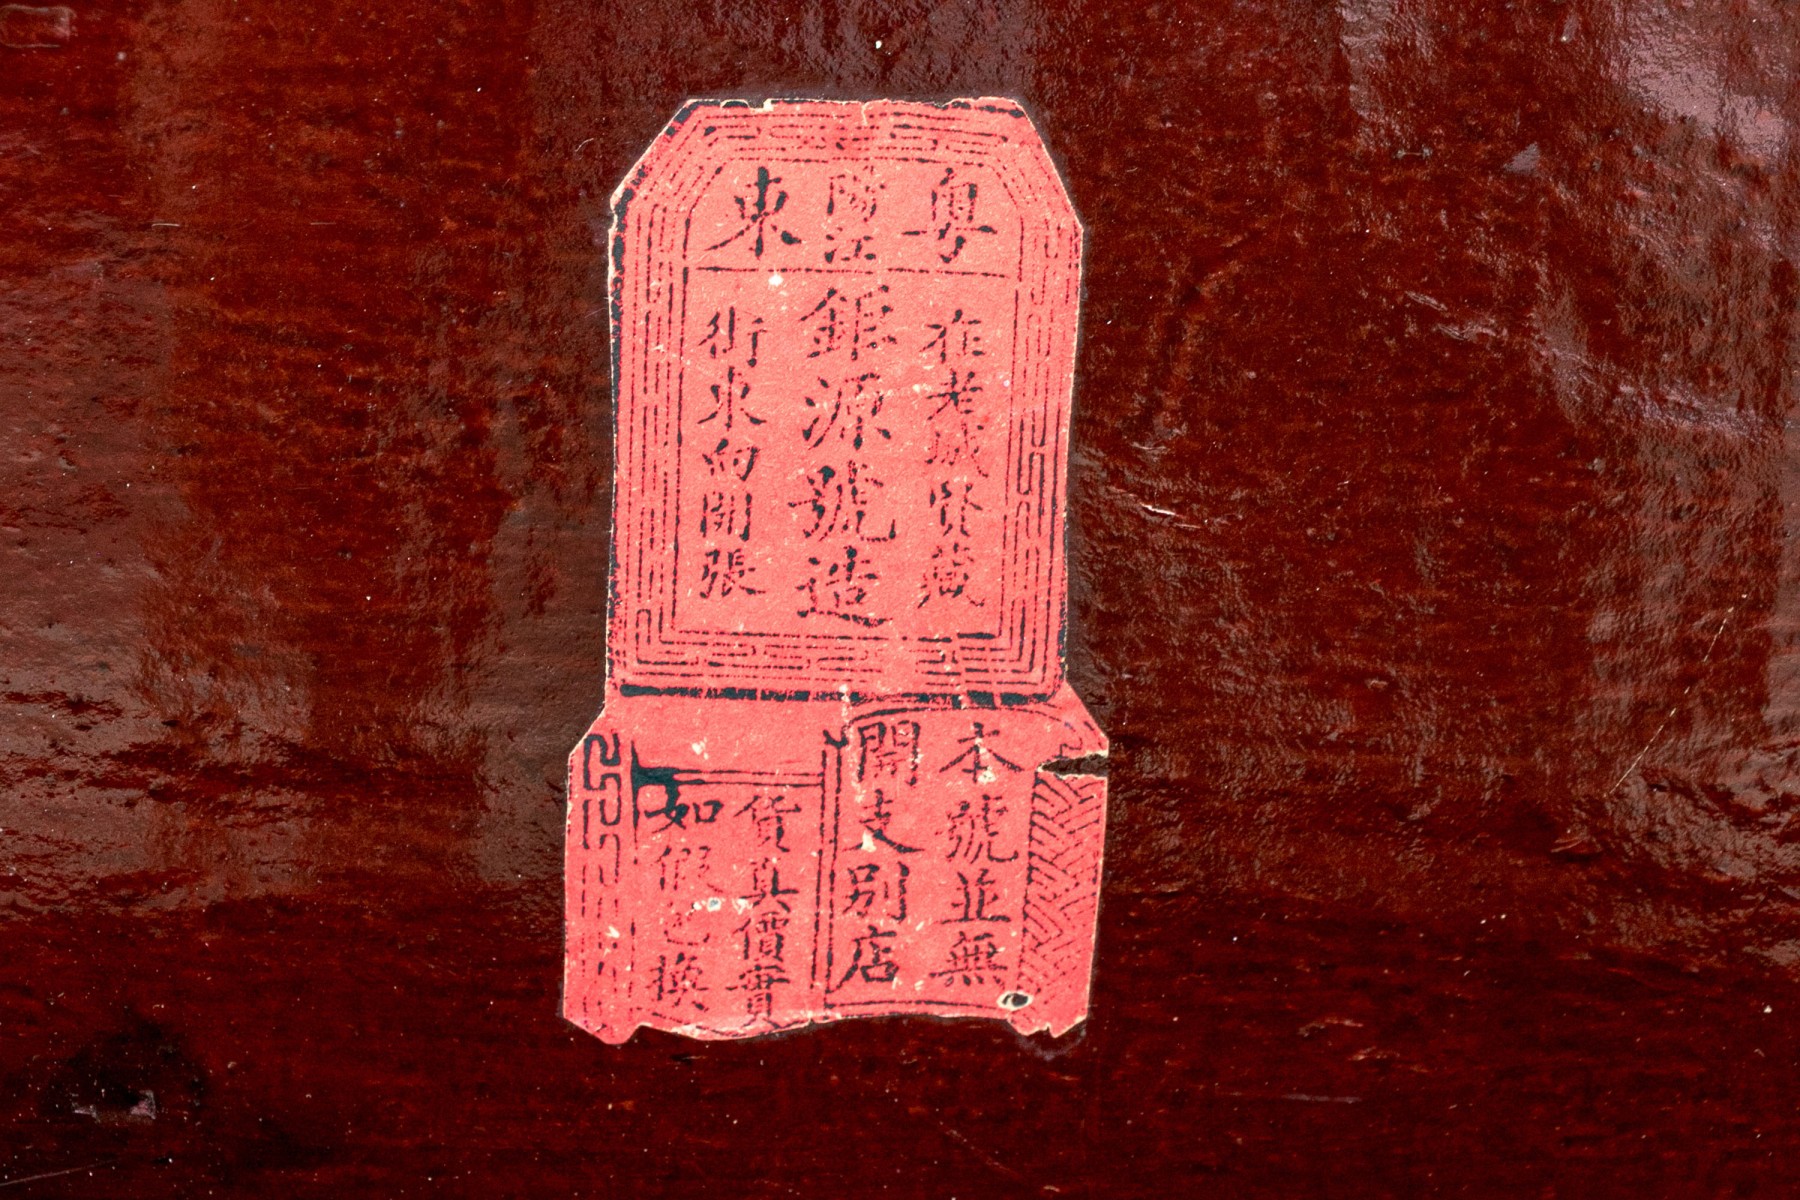 粤東
陽江
在老城賢藏
鉅源號造
街東向開張
本號並無
開支别店
貨真價實
如假包換